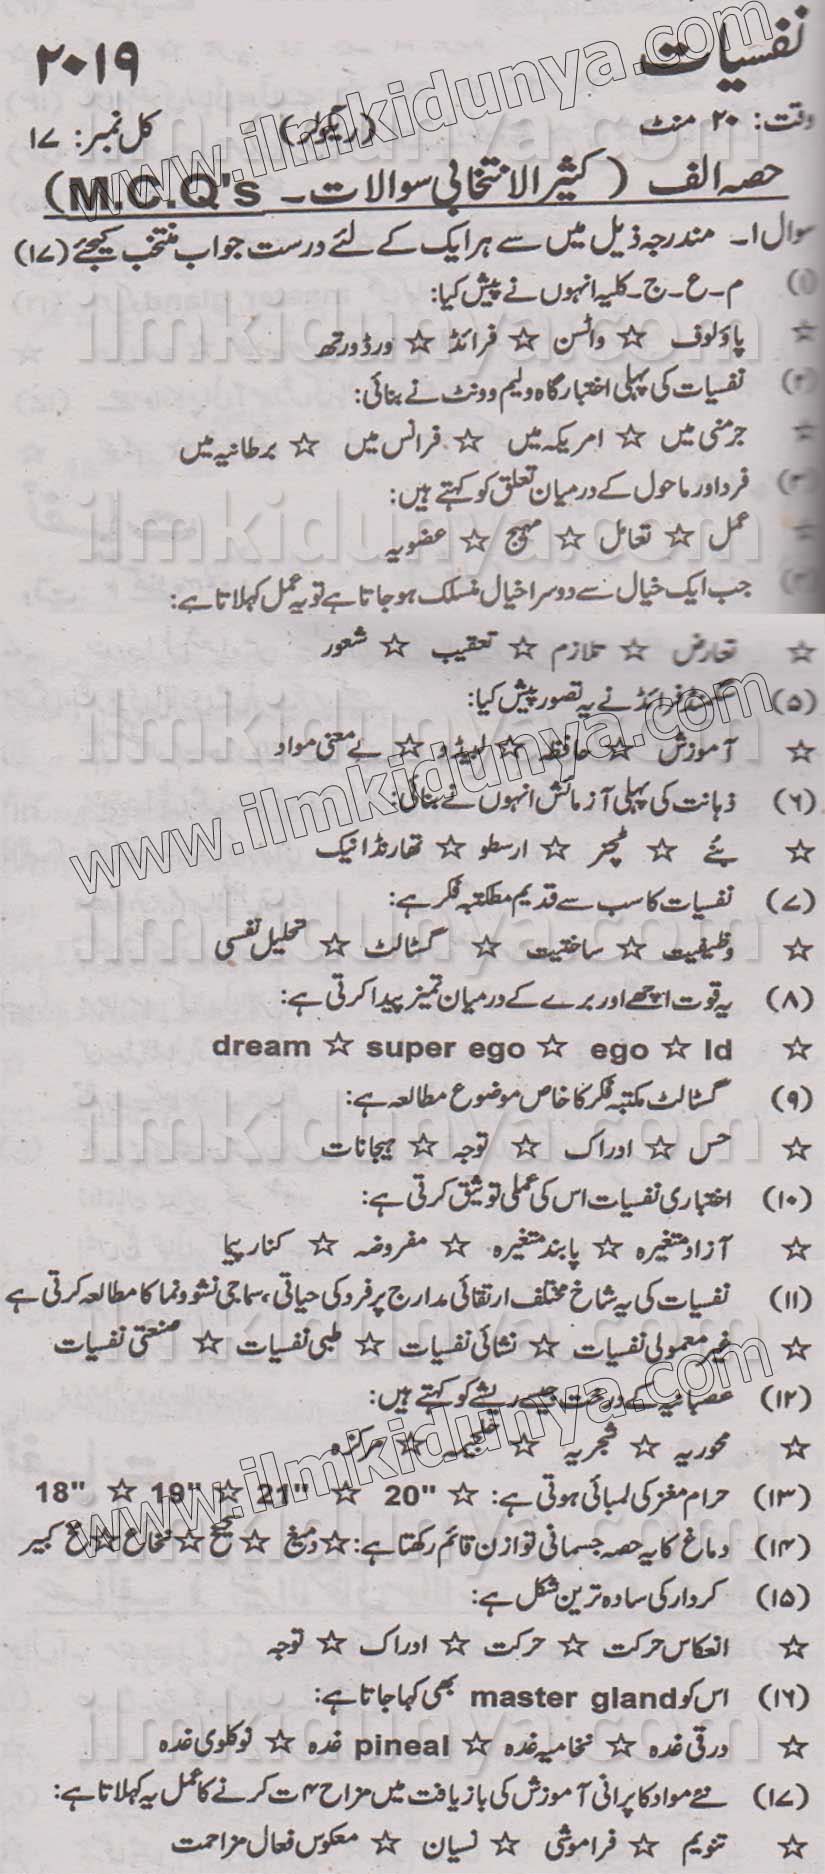 نفسیات
۲۰۱۹
وقت: ۲۰ منٹ (ریگولر) کل نمبر: ۱۷
حصہ الف (کثیر الانتخابی سوالات۔ M.C.Q's)
سوال ۱۔ مندرجہ ذیل میں سے ہر ایک کے لئے درست جواب منتخب کیجئے (۱۷)
(۱) م۔ع۔ج۔کلیہ انہوں نے پیش کیا:
☆ پاؤلوف ☆ واٹسن ☆ فرائڈ ☆ ورڈورتھ
(۲) نفسیات کی پہلی اختبار گاہ ولیم وونٹ نے بنائی:
☆ جرمنی میں ☆ امریکہ میں ☆ فرانس میں ☆ برطانیہ میں
(۳) فرد اور ماحول کے درمیان تعلق کو کہتے ہیں:
☆ عمل ☆ تعامل ☆ مہیج ☆ عضویہ
(۴) جب ایک خیال سے دوسرا خیال منسلک ہو جاتا ہے تو یہ عمل کہلاتا ہے:
☆ تعارض ☆ تلازم ☆ تعقیب ☆ شعور
(۵) سگمنڈ فرائڈ نے یہ تصور پیش کیا:
☆ آموزش ☆ حافظہ ☆ لبیڈو ☆ بے معنی مواد
(۶) ذہانت کی پہلی آزمائش انہوں نے بنائی:
☆ بنے ☆ ٹچنر ☆ ارسطو ☆ تھارنڈائیک
(۷) نفسیات کا سب سے قدیم مکتبہ فکر ہے:
☆ وظیفیت ☆ ساختیت ☆ گسٹالٹ ☆ تحلیل نفسی
(۸) یہ قوت اچھے اور برے کے درمیان تمیز پیدا کرتی ہے:
☆ Id ☆ ego ☆ super ego ☆ dream
(۹) گسٹالٹ مکتبہ فکر کا خاص موضوع مطالعہ ہے:
☆ حس ☆ ادراک ☆ توجہ ☆ ہیجانات
(۱۰) اختباری نفسیات اس کی عملی توثیق کرتی ہے:
☆ آزاد متغیرہ ☆ پابند متغیرہ ☆ مفروضہ ☆ کنار پیما
(۱۱) نفسیات کی یہ شاخ مختلف ارتقائی مدارج پر فرد کی حیاتی، سماجی نشوونما کا مطالعہ کرتی ہے
☆ غیر معمولی نفسیات ☆ نشائی نفسیات ☆ طبی نفسیات ☆ صنعتی نفسیات
(۱۲) عصبانیہ کے درخت جیسے ریشے کو کہتے ہیں:
☆ محوریہ ☆ شجریہ ☆ خلیمہ ☆ مرکزہ
(۱۳) حرام مغز کی لمبائی ہوتی ہے: ☆ 20" ☆ 21" ☆ 19" ☆ 18"
(۱۴) دماغ کا یہ حصہ جسمانی توازن قائم رکھتا ہے: ☆ دمیغ ☆ ☆ نخاع ☆ مخ کبیر
(۱۵) کردار کی سادہ ترین شکل ہے:
☆ انعکاس حرکت ☆ حرکت ☆ ادراک ☆ توجہ
(۱۶) اس کو master gland بھی کہا جاتا ہے:
☆ درقی غدہ ☆ نخامیہ غدہ ☆ pineal غدہ ☆ نوکلوی غدہ
(۱۷) نئے مواد کا پرانی آموزش کی بازیافت میں مزاح ۴ ت کرنے کا عمل یہ کہلاتا ہے:
☆ تنویم ☆ فراموشی ☆ نسیان ☆ معکوس فعال مزاحمت
www.ilmkidunya.com
ilmkidunya.com